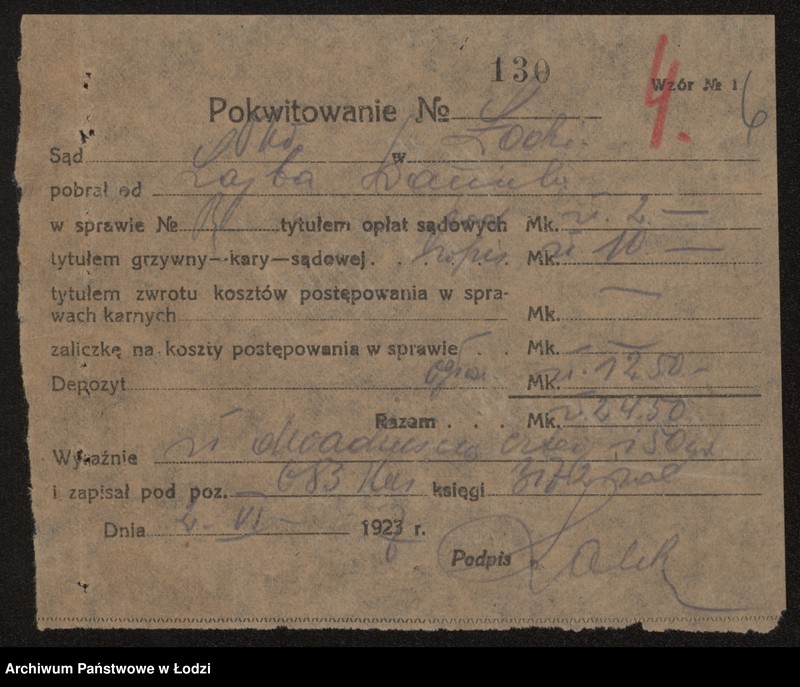 130
4.
Wzór № 1
6
Pokwitowanie №
Sąd w Łodzi
pobrał od Lajba
w sprawie № tytułem opłat sądowych Mk. zł. 2 —
tytułem grzywny—kary—sądowej . . . . wpis. Mk. zł 10 —
tytułem zwrotu kosztów postępowania w spra-
wach karnych Mk. —
zaliczkę na koszty postępowania w sprawie . . Mk. —
Depozyt ogł. Mk. zł. 12 50 -
Razem . . Mk. zł 24.50
Wyraźnie zł dwadzieścia cztery i 50 gr
i zapisał pod poz. 683 księgi
Dnia 2. VI — 1923 r.
Podpis
Archiwum Państwowe w Łodzi